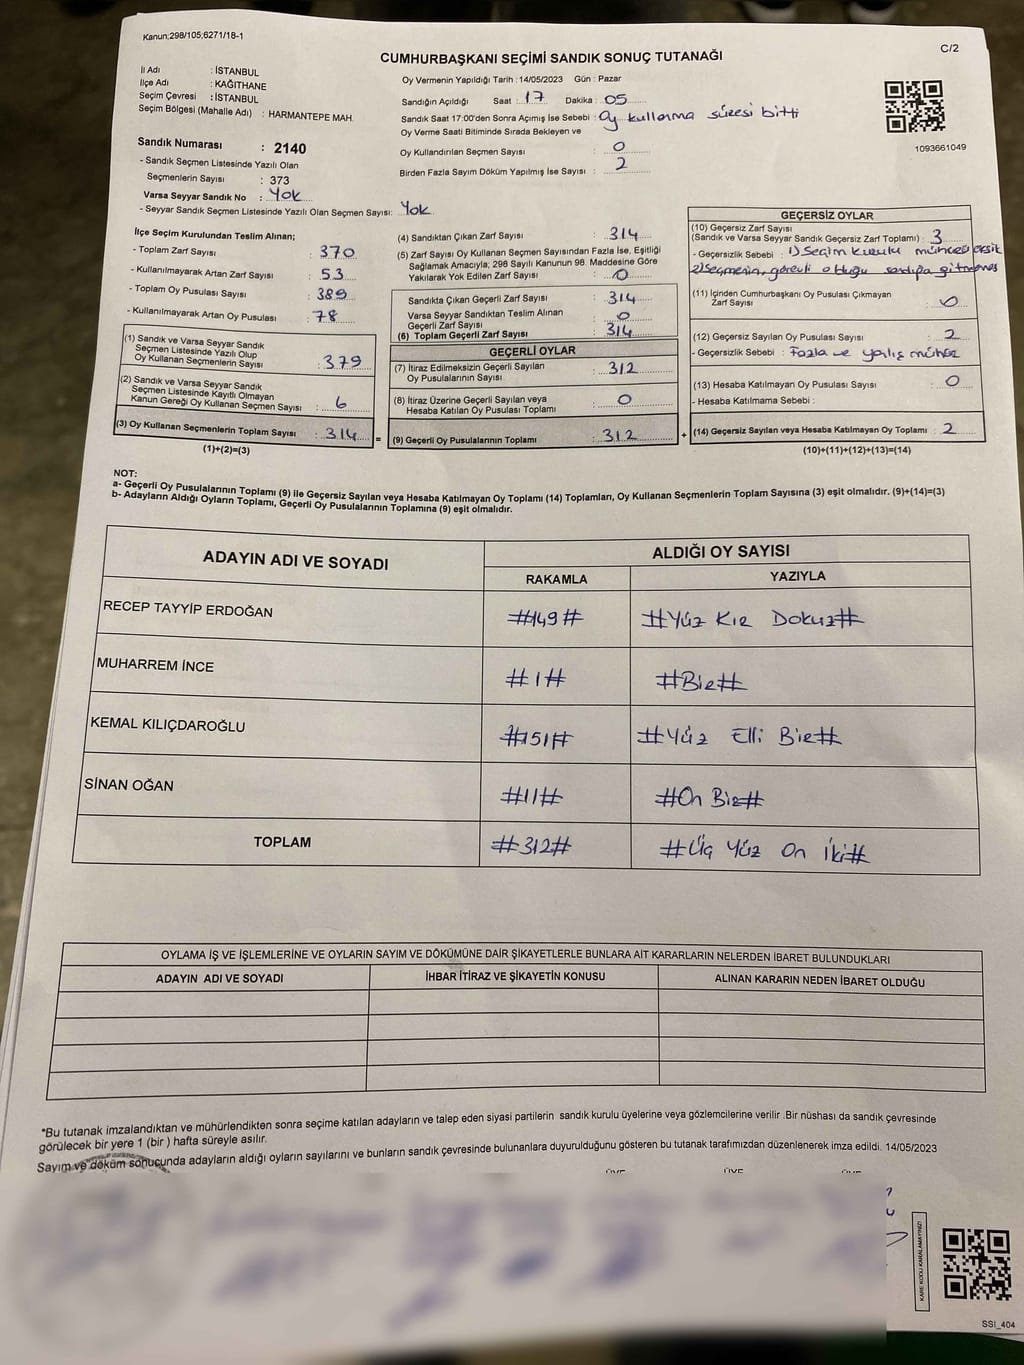 Kanun;298/105,6271/18-1
C/2
CUMHURBAŞKANI SEÇİMİ SANDIK SONUÇ TUTANAĞI
İl Adı : İSTANBUL
İlçe Adı : KAĞITHANE
Seçim Çevresi : İSTANBUL
Seçim Bölgesi (Mahalle Adı) : HARMANTEPE MAH.
Sandık Numarası : 2140
- Sandık Seçmen Listesinde Yazılı Olan
Seçmenlerin Sayısı : 373
Varsa Seyyar Sandık No : Yok
- Seyyar Sandık Seçmen Listesinde Yazılı Olan Seçmen Sayısı: Yok
Oy Vermenin Yapıldığı Tarih : 14/05/2023 Gün : Pazar
Sandığın Açıldığı Saat : 17 Dakika : 05
Sandık Saat 17:00'den Sonra Açımış İse Sebebi : Oy kullanma süresi bitti
Oy Verme Saati Bitiminde Sırada Bekleyen ve
Oy Kullandırılan Seçmen Sayısı : 0
Birden Fazla Sayım Döküm Yapılmış İse Sayısı : 2
1093661049
İlçe Seçim Kurulundan Teslim Alınan;
- Toplam Zarf Sayısı : 370
- Kullanılmayarak Artan Zarf Sayısı : 53
- Toplam Oy Pusulası Sayısı : 389
- Kullanılmayarak Artan Oy Pusulası : 78
(1) Sandık ve Varsa Seyyar Sandık
Seçmen Listesinde Yazılı Olup
Oy Kullanan Seçmenlerin Sayısı : 379
(2) Sandık ve Varsa Seyyar Sandık
Seçmen Listesinde Kayıtlı Olmayan
Kanun Gereği Oy Kullanan Seçmen Sayısı : 6
(3) Oy Kullanan Seçmenlerin Toplam Sayısı : 314 =
(1)+(2)=(3)
(4) Sandıktan Çıkan Zarf Sayısı : 314
(5) Zarf Sayısı Oy Kullanan Seçmen Sayısından Fazla İse, Eşitliği
Sağlamak Amacıyla; 298 Sayılı Kanunun 98. Maddesine Göre
Yakılarak Yok Edilen Zarf Sayısı : 0
Sandıkta Çıkan Geçerli Zarf Sayısı : 314
Varsa Seyyar Sandıktan Teslim Alınan
Geçerli Zarf Sayısı : 0
(6) Toplam Geçerli Zarf Sayısı : 314
GEÇERLİ OYLAR
(7) İtiraz Edilmeksizin Geçerli Sayılan
Oy Pusulalarının Sayısı : 312
(8) İtiraz Üzerine Geçerli Sayılan veya
Hesaba Katılan Oy Pusulası Toplamı : 0
(9) Geçerli Oy Pusulalarının Toplamı : 312 +
GEÇERSİZ OYLAR
(10) Geçersiz Zarf Sayısı
(Sandık ve Varsa Seyyar Sandık Geçersiz Zarf Toplamı) : 3
- Geçersizlik Sebebi : 1) Seçim kurulu mührü eksik
2) Seçmenin, görevli olduğu sandığa gitmemes
(11) İçinden Cumhurbaşkanı Oy Pusulası Çıkmayan
Zarf Sayısı : 0
(12) Geçersiz Sayılan Oy Pusulası Sayısı : 2
- Geçersizlik Sebebi : Fazla ve yalış mühür
(13) Hesaba Katılmayan Oy Pusulası Sayısı : 0
- Hesaba Katılmama Sebebi :
(14) Geçersiz Sayılan veya Hesaba Katılmayan Oy Toplamı : 2
(10)+(11)+(12)+(13)=(14)
NOT:
a- Geçerli Oy Pusulalarının Toplamı (9) ile Geçersiz Sayılan veya Hesaba Katılmayan Oy Toplamı (14) Toplamları, Oy Kullanan Seçmenlerin Toplam Sayısına (3) eşit olmalıdır. (9)+(14)=(3)
b- Adayların Aldığı Oyların Toplamı, Geçerli Oy Pusulalarının Toplamına (9) eşit olmalıdır.
ADAYIN ADI VE SOYADI
ALDIĞI OY SAYISI
RAKAMLA YAZIYLA
RECEP TAYYİP ERDOĞAN #149# #Yüz Kır Dokuz#
MUHARREM İNCE #1# #Bir#
KEMAL KILIÇDAROĞLU #151# #Yüz Elli Bir#
SİNAN OĞAN #11# #On Bir#
TOPLAM #312# #Üç Yüz On İki#
OYLAMA İŞ VE İŞLEMLERİNE VE OYLARIN SAYIM VE DÖKÜMÜNE DAİR ŞİKAYETLERLE BUNLARA AİT KARARLARIN NELERDEN İBARET BULUNDUKLARI
ADAYIN ADI VE SOYADI İHBAR İTİRAZ VE ŞİKAYETİN KONUSU ALINAN KARARIN NEDEN İBARET OLDUĞU
*Bu tutanak imzalandıktan ve mühürlendikten sonra seçime katılan adayların ve talep eden siyasi partilerin sandık kurulu üyelerine veya gözlemcilerine verilir .Bir nüshası da sandık çevresinde
görülecek bir yere 1 (bir ) hafta süreyle asılır.
Sayım ve döküm sonucunda adayların aldığı oyların sayılarını ve bunların sandık çevresinde bulunanlara duyurulduğunu gösteren bu tutanak tarafımızdan düzenlenerek imza edildi. 14/05/2023
ÜYE ÜYE ÜYE
KARE KODU KARALAMAYINIZ!
SSI_404